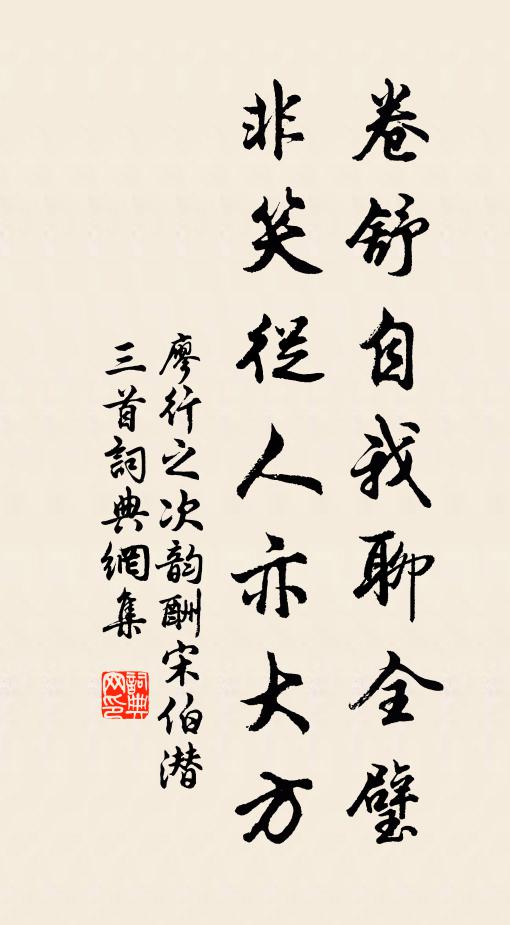 卷舒自我聊全璧
非笑從人亦大方
廖行之次韵酬宋伯潜
三首詞典網集
詞典
网印